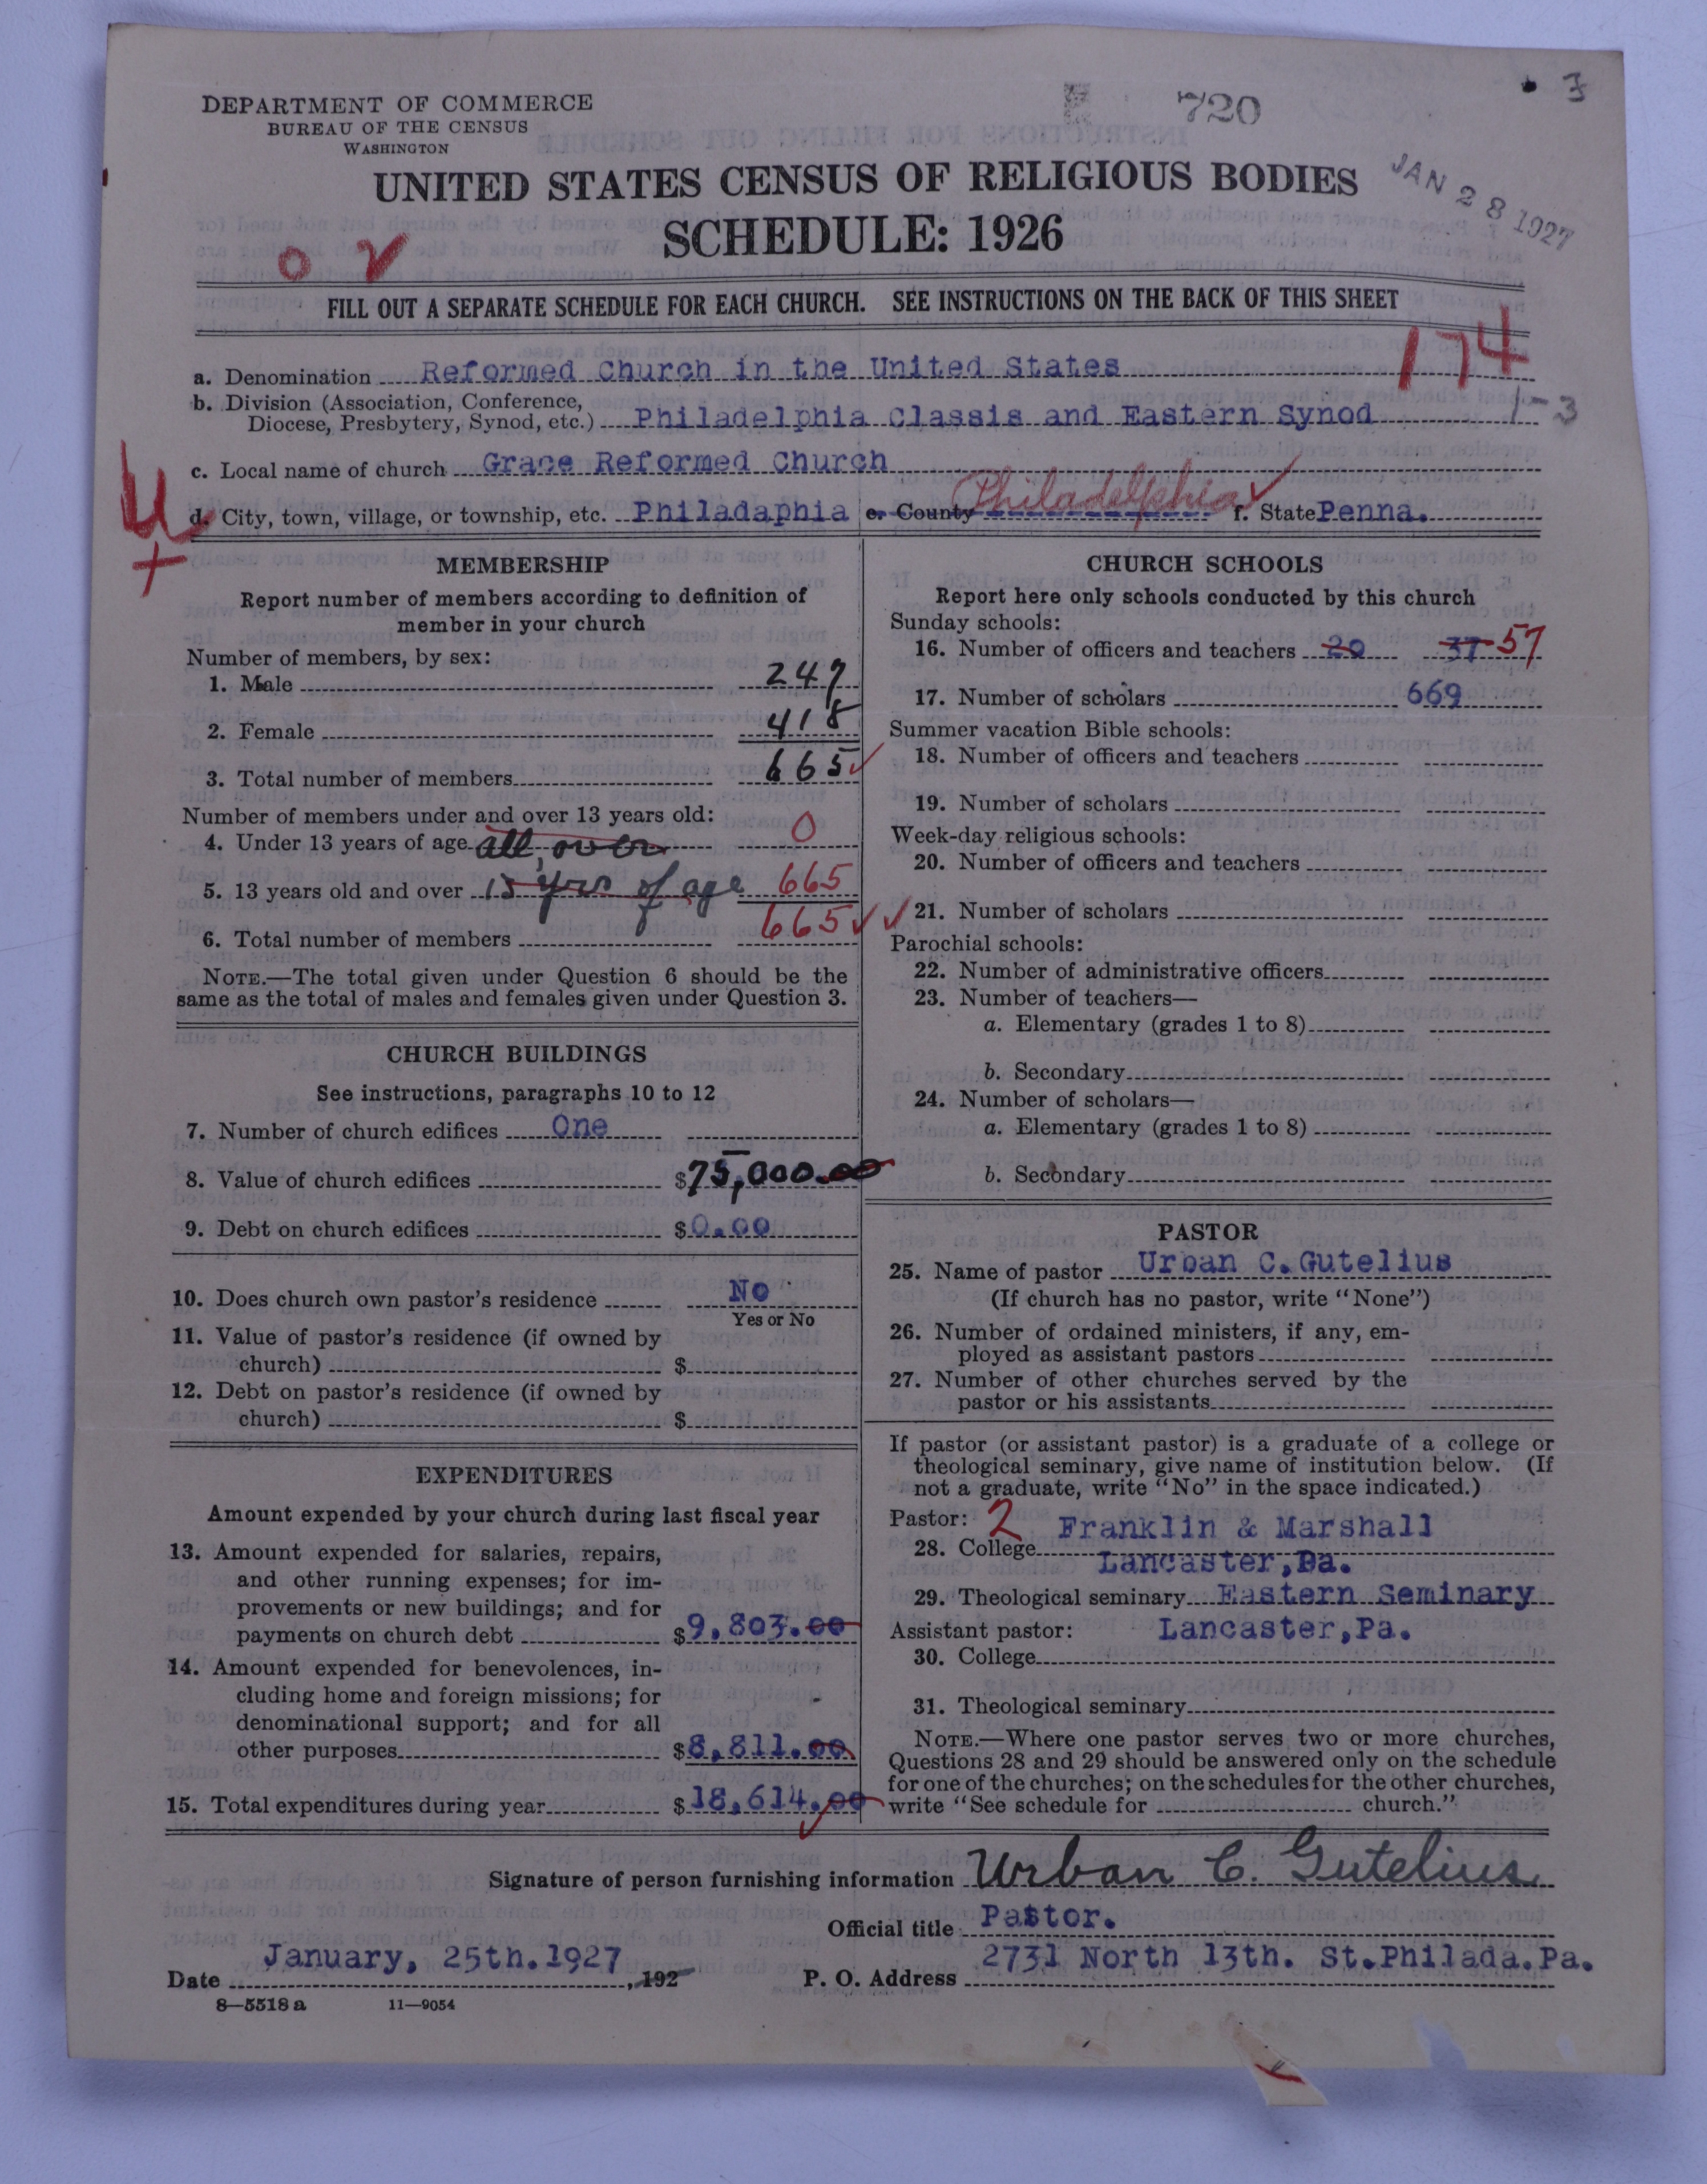 720
3
DEPARTMENT OF COMMERCE
BUREAU OF THE CENSUS
WASHINGTON
UNITED STATES CENSUS OF RELIGIOUS BODIES
SCHEDULE: 1926
JAN 28 1927
FILL OUT A SEPARATE SCHEDULE FOR EACH CHURCH. SEE INSTRUCTIONS ON THE BACK OF THIS SHEET
174
a. Denomination Reformed Church in the United States
1-3
b. Division (Association, Conference,
Diocese, Presbytery, Synod, etc.) Philadelphia Classis and Eastern Synod
c. Local name of church Grace Reformed Church
d. City, town, village, or township, etc. Philadaphia e. County Philadelphia f. State Penna.
MEMBERSHIP
Report number of members according to definition of
member in your church
Number of members, by sex:
1. Male 247
2. Female 418
3. Total number of members 665
Number of members under and over 13 years old:
4. Under 13 years of age all, over 0
5. 13 years old and over 13 yrs of age 665
6. Total number of members 665
NOTE.—The total given under Question 6 should be the
same as the total of males and females given under Question 3.
CHURCH BUILDINGS
See instructions, paragraphs 10 to 12
7. Number of church edifices One
8. Value of church edifices $75,000.00
9. Debt on church edifices $0.00
10. Does church own pastor's residence No
Yes or No
11. Value of pastor's residence (if owned by
church) $
12. Debt on pastor's residence (if owned by
church) $
EXPENDITURES
Amount expended by your church during last fiscal year
13. Amount expended for salaries, repairs,
and other running expenses; for im-
provements or new buildings; and for
payments on church debt $9,803.00
14. Amount expended for benevolences, in-
cluding home and foreign missions; for
denominational support; and for all
other purposes $8,811.00
15. Total expenditures during year $18,614.00
CHURCH SCHOOLS
Report here only schools conducted by this church
Sunday schools:
16. Number of officers and teachers 20 37 57
17. Number of scholars 669
Summer vacation Bible schools:
18. Number of officers and teachers
19. Number of scholars
Week-day religious schools:
20. Number of officers and teachers
21. Number of scholars
Parochial schools:
22. Number of administrative officers
23. Number of teachers—
a. Elementary (grades 1 to 8)
b. Secondary
24. Number of scholars—
a. Elementary (grades 1 to 8)
b. Secondary
PASTOR
25. Name of pastor Urban C.Gutelius
(If church has no pastor, write "None")
26. Number of ordained ministers, if any, em-
ployed as assistant pastors
27. Number of other churches served by the
pastor or his assistants
If pastor (or assistant pastor) is a graduate of a college or
theological seminary, give name of institution below. (If
not a graduate, write "No" in the space indicated.)
Pastor: 2
28. College Franklin & Marshall
Lancaster,Pa.
29. Theological seminary Eastern Seminary
Assistant pastor: Lancaster,Pa.
30. College
31. Theological seminary
NOTE.—Where one pastor serves two or more churches,
Questions 28 and 29 should be answered only on the schedule
for one of the churches; on the schedules for the other churches,
write "See schedule for church."
Signature of person furnishing information Urban C. Gutelius
Official title Pastor.
Date January, 25th.1927, 192
P. O. Address 2731 North 13th. St.Philada.Pa.
8—5518 a 11—9054